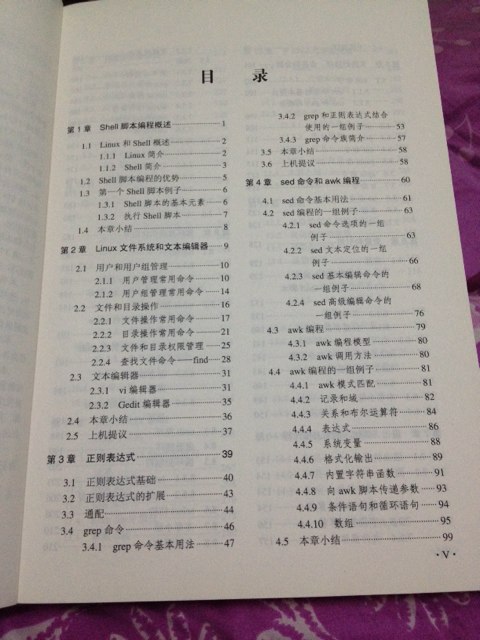 目 录
第 1 章 Shell 脚本编程概述 1
1.1 Linux 和 Shell 概述 2
1.1.1 Linux 简介 2
1.1.2 Shell 简介 3
1.2 Shell 脚本编程的优势 5
1.3 第一个 Shell 脚本例子 6
1.3.1 Shell 脚本的基本元素 6
1.3.2 执行 Shell 脚本 7
1.4 本章小结 8
第 2 章 Linux 文件系统和文本编辑器 9
2.1 用户和用户组管理 10
2.1.1 用户管理常用命令 10
2.1.2 用户组管理常用命令 14
2.2 文件和目录操作 16
2.2.1 文件操作常用命令 17
2.2.2 目录操作常用命令 21
2.2.3 文件和目录权限管理 25
2.2.4 查找文件命令——find 28
2.3 文本编辑器 31
2.3.1 vi 编辑器 31
2.3.2 Gedit 编辑器 35
2.4 本章小结 36
2.5 上机提议 37
第 3 章 正则表达式 39
3.1 正则表达式基础 40
3.2 正则表达式的扩展 43
3.3 通配 44
3.4 grep 命令 46
3.4.1 grep 命令基本用法 47
3.4.2 grep 和正则表达式结合
使用的一组例子 53
3.4.3 grep 命令族简介 57
3.5 本章小结 58
3.6 上机提议 58
第 4 章 sed 命令和 awk 编程 60
4.1 sed 命令基本用法 61
4.2 sed 编程的一组例子 63
4.2.1 sed 命令选项的一组
例子 63
4.2.2 sed 文本定位的一组
例子 66
4.2.3 sed 基本编辑命令的
一组例子 68
4.2.4 sed 高级编辑命令的
一组例子 76
4.3 awk 编程 79
4.3.1 awk 编程模型 80
4.3.2 awk 调用方法 80
4.4 awk 编程的一组例子 81
4.4.1 awk 模式匹配 81
4.4.2 记录和域 82
4.4.3 关系和布尔运算符 84
4.4.4 表达式 86
4.4.5 系统变量 88
4.4.6 格式化输出 89
4.4.7 内置字符串函数 91
4.4.8 向 awk 脚本传递参数 93
4.4.9 条件语句和循环语句 94
4.4.10 数组 95
4.5 本章小结 99
· V ·